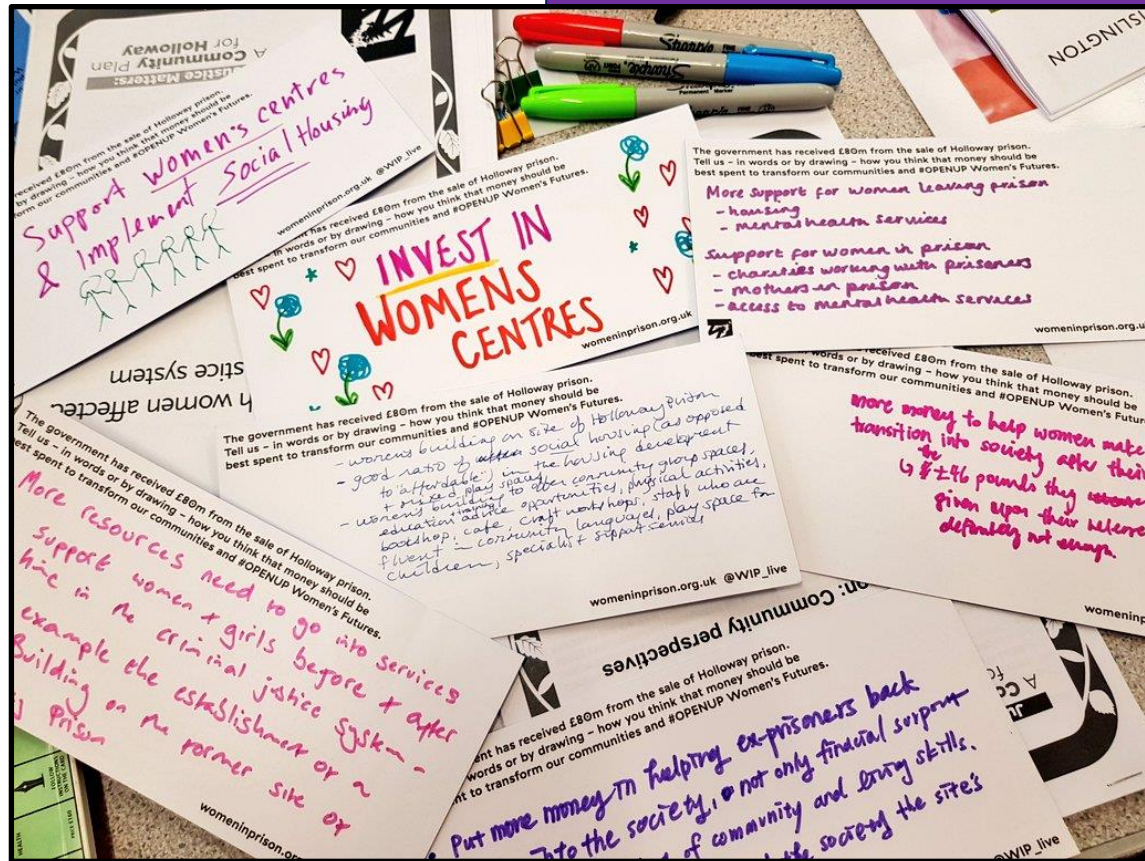 A Community Plan
for Holloway
Justice Matters:
Sharpie
Sharpie
Permanent Marker
ISLINGTON
received £80m from the sale of Holloway prison.
by drawing – how you think that money should be
form our communities and #OPENUP Women's Futures.
Support women's centres
& Implement Social Housing
womeninprison.org.uk @WIP_live
has received £80m from the sale of Holloway prison.
in words or by drawing – how you think that money should be
best spent to transform our communities and #OPENUP Women's Futures.
INVEST IN
WOMENS
CENTRES
womeninprison.org.uk
The government has received £80m from the sale of Holloway prison.
Tell us – in words or by drawing – how you think that money should be
best spent to transform our communities and #OPENUP Women's Futures.
More support for women leaving prison
- housing
- mental health services
Support for women in prison
- charities working with prisoners
- mothers in prison
- access to mental health services
womeninprison.org.u
stice system
h women affected
The government has received £80m from the sale of Holloway prison.
Tell us – in words or by drawing – how you think that money should be
best spent to transform our communities and #OPENUP Women's Futures.
- womens building on site of Holloway Prison
- good ratio of social housing (as opposed
to 'affordable') in the housing development
+ mixed play spaces
- womens building to offer community group spaces,
education advice opportunities, physical activities,
training
bookshop, cafe, craft workshops, staff who are
fluent in community languages, play space for
children, specialist support services
womeninprison.org.uk @WIP_live
received £80m from the sale of Holloway prison.
in words or by drawing – how you think that money should be
best spent to transform our communities and #OPENUP Women's Futu
more money to help women make
transition into society after their
the
↳ ££46 pounds they
given upon their release
definitely not enough.
womeninp
The government has received £80m from the sale of Holloway prison.
Tell us – in words or by drawing – how you think that money should be
best spent to transform our communities and #OPENUP Women's Futures.
More resources need to go into services
support women + girls before + after
time in the criminal justice system -
example the establishment of a
Building on the former site of
Prison
womeninprison.or
on: Community perspectives
ent has received £80m from the sale of Holloway prison.
words or by drawing – how you think that money should be
nt to transform our communities and #OPENUP Women's Futures.
Put more money in helping ex-prisoners back
into the society, not only finacial surport
of community and living skills.
the society the site's
@WIP_live
FOLLOW
INSTRUCTIONS
ON THE CARD
PRICE £160
HEALTH